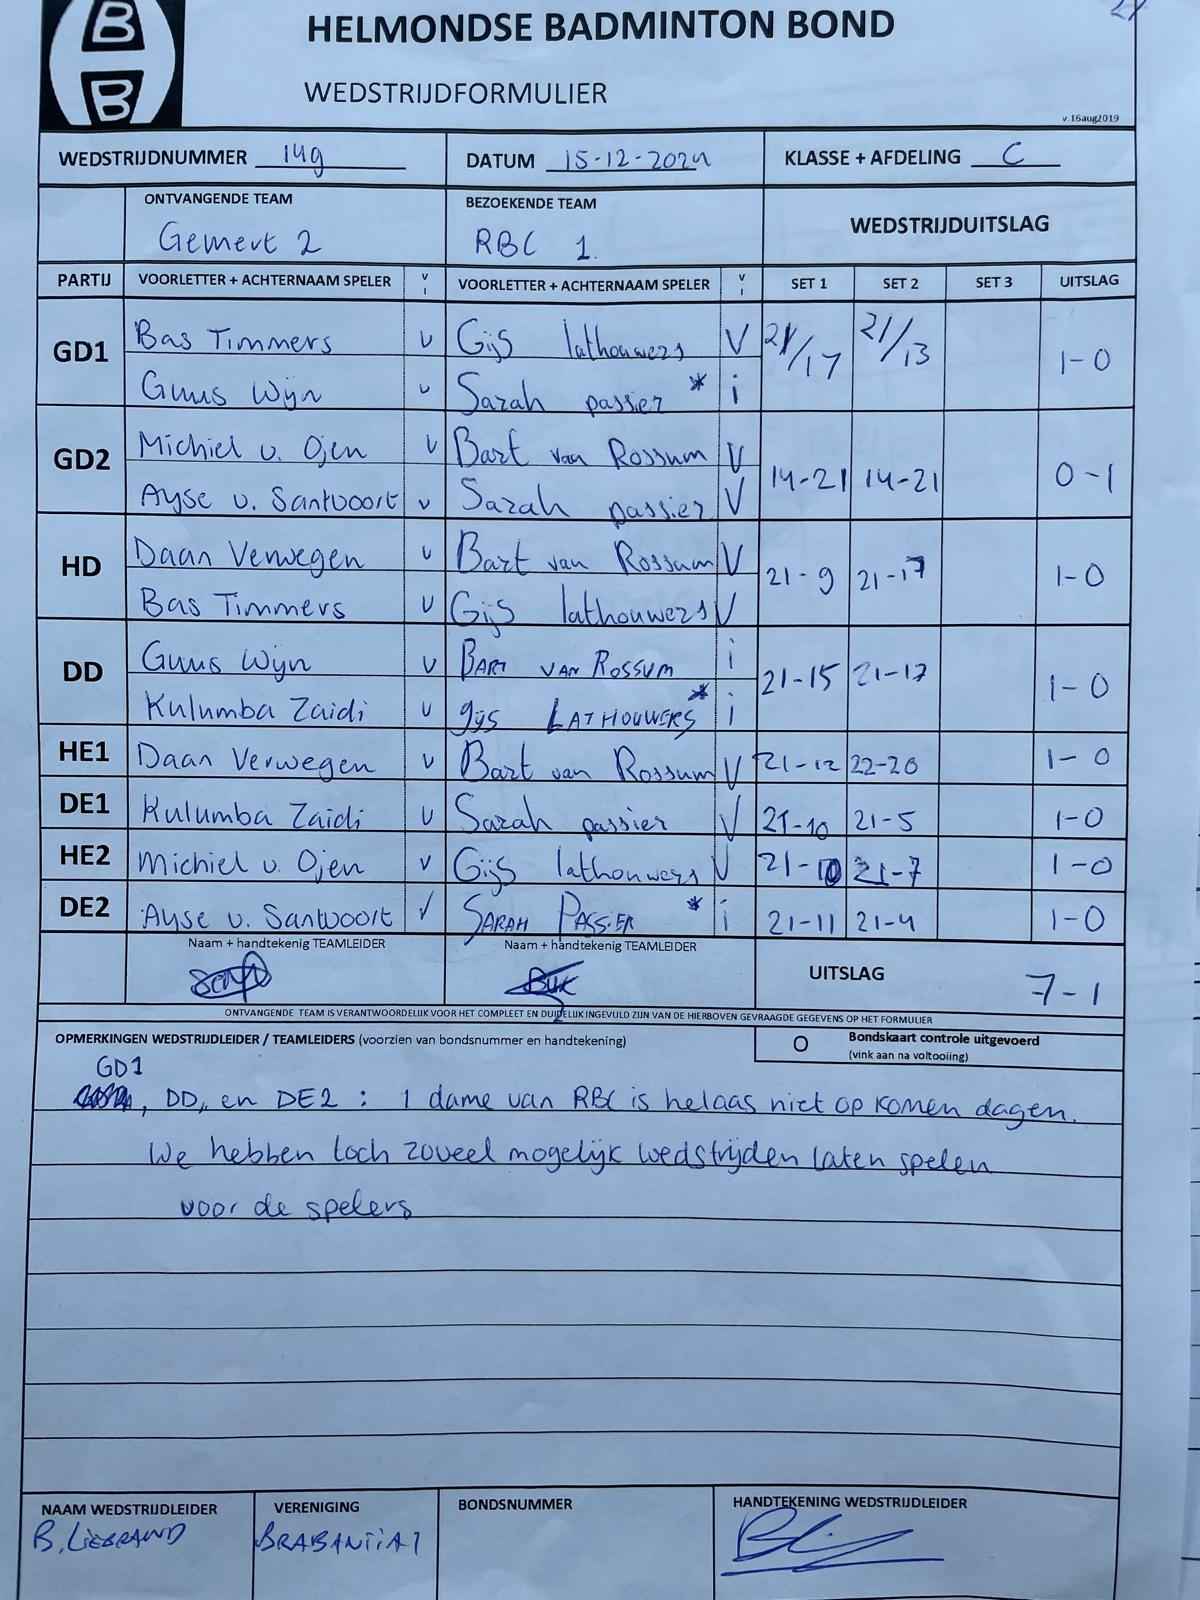 B
B
HELMONDSE BADMINTON BOND
WEDSTRIJDFORMULIER
v.16aug2019
WEDSTRIJDNUMMER 14g DATUM 15-12-2024 KLASSE + AFDELING C
ONTVANGENDE TEAM BEZOEKENDE TEAM WEDSTRIJDUITSLAG
Gemert 2 RBC 1.
PARTIJ VOORLETTER + ACHTERNAAM SPELER V I VOORLETTER + ACHTERNAAM SPELER V I SET 1 SET 2 SET 3 UITSLAG
GD1 Bas Timmers v Gijs lathouwers V 21/17 21/13 1-0
Guus Wijn v Sarah passier * i
GD2 Michiel v. Ojen v Bart van Rossum V 14-21 14-21 0-1
Ayse v. Santvoort v Sarah passier V
HD Daan Verwegen v Bart van Rossum V 21-9 21-17 1-0
Bas Timmers v Gijs lathouwers V
DD Guus Wijn v BART VAN ROSSUM i 21-15 21-17 1-0
Kulumba Zaidi v gijs LATHOUWERS * i
HE1 Daan Verwegen v Bart van Rossum V 21-12 22-20 1-0
DE1 Kulumba Zaidi v Sarah passier V 21-10 21-5 1-0
HE2 Michiel v. Ojen v Gijs lathouwers V 21-10 21-7 1-0
DE2 Ayse v. Santvoort v SARAH PASSIER * i 21-11 21-4 1-0
Naam + handtekenig TEAMLEIDER Naam + handtekenig TEAMLEIDER
UITSLAG 7-1
ONTVANGENDE TEAM IS VERANTWOORDELIJK VOOR HET COMPLEET EN DUIDELIJK INGEVULD ZIJN VAN DE HIERBOVEN GEVRAAGDE GEGEVENS OP HET FORMULIER
OPMERKINGEN WEDSTRIJDLEIDER / TEAMLEIDERS (voorzien van bondsnummer en handtekening) O Bondskaart controle uitgevoerd
(vink aan na voltooiing)
GD1
, DD, en DE2 : 1 dame van RBC is helaas niet op komen dagen.
We hebben toch zoveel mogelijk wedstrijden laten spelen
voor de spelers
NAAM WEDSTRIJDLEIDER VERENIGING BONDSNUMMER HANDTEKENING WEDSTRIJDLEIDER
B. LIEBRAND BRABANTIA